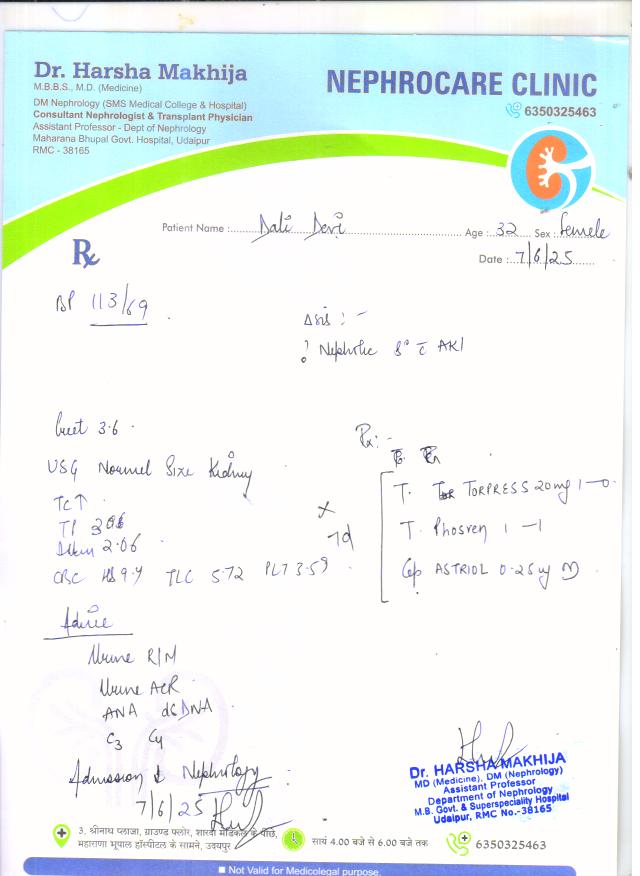 Dr. Harsha Makhija
M.B.B.S., M.D. (Medicine)
DM Nephrology (SMS Medical College & Hospital)
Consultant Nephrologist & Transplant Physician
Assistant Professor - Dept of Nephrology
Maharana Bhupal Govt. Hospital, Udaipur
RMC - 38165
NEPHROCARE CLINIC
6350325463
Patient Name : Dali Devi Age : 32 Sex : Female
Date : 7/6/25
Rx
BP 113/69
Δsis : -
? Nephrotic S° c̄ AKI
Creat 3.6
USG Normal Size Kidney
TC↑
TP
2.06
CBC HB 9.4 TLC 5.72 PLT 3.59
Rx: -
T. TORPRESS 20mg 1-0
T. Phosren 1-1
Cap ASTRIOL 0.25 OD
x 7d
Advice
Urine R/M
Urine ACR
ANA dsDNA
C3 C4
Admission Nephrology
7/6/25
Dr. HARSHA MAKHIJA
MD (Medicine), DM (Nephrology)
Assistant Professor
Department of Nephrology
M.B. Govt. & Superspeciality Hospital
Udaipur, RMC No.-38165
3, श्रीनाथ प्लाजा, ग्राउण्ड फ्लोर, शारदा मेडिकल के पीछे,
महाराणा भूपाल हॉस्पीटल के सामने, उदयपुर
सायं 4.00 बजे से 6.00 बजे तक
6350325463
Not Valid for Medicolegal purpose.